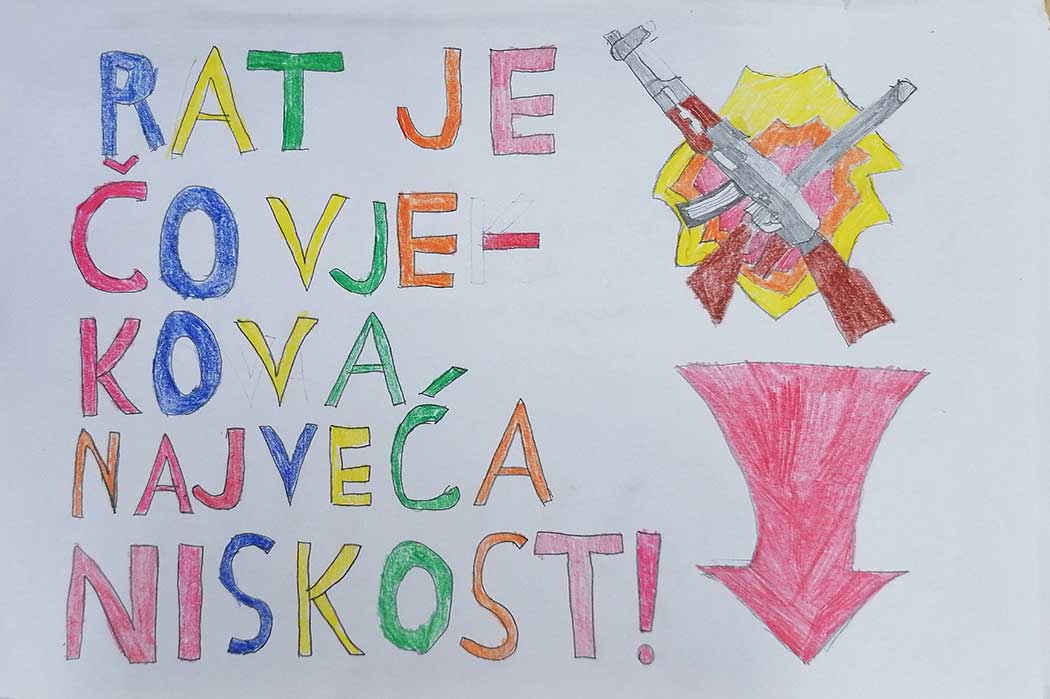 RAT JE
ČOVJE-
KOVA
NAJVEĆA
NISKOST!